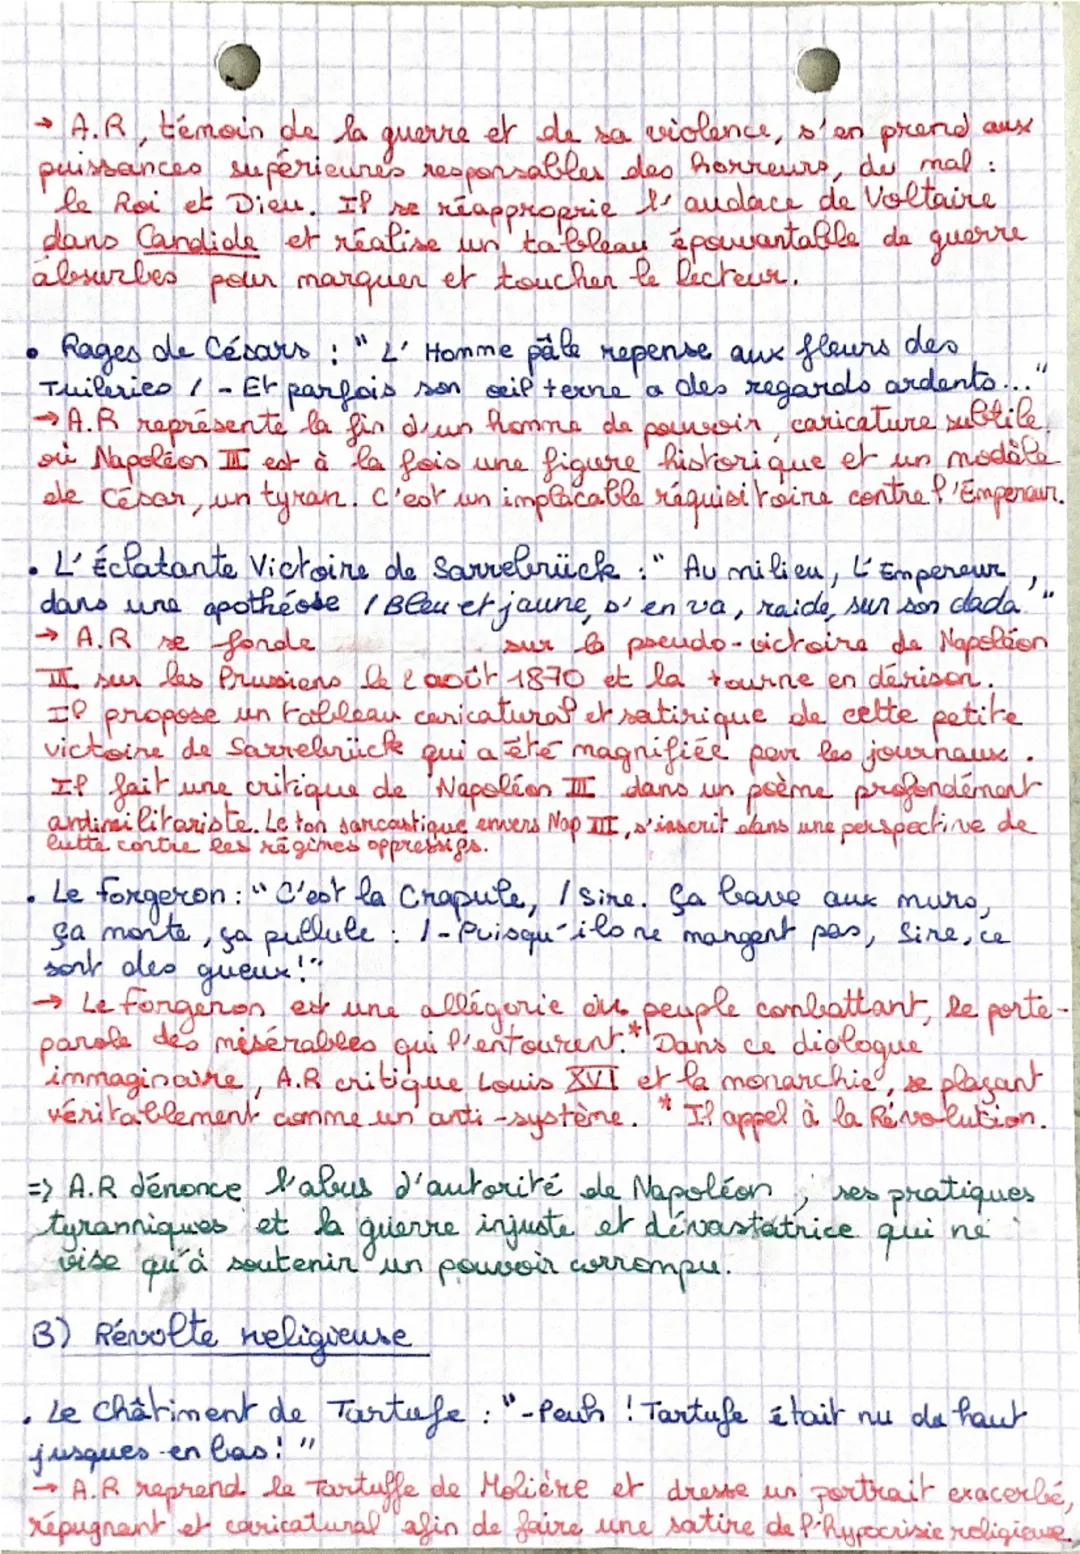 → A.R, témoin de la guerre et de sa violence, s'en prend aux
puissances supérieures responsables des horreurs, du mal :
le Roi et Dieu. Il se réapproprie l'audace de Voltaire
dans Candide et réalise un tableau épouvantable de guerre
absurbes pour marquer et toucher le lecteur.
• Rages de Césars : " L'Homme pâle repense aux fleurs des
Tuileries / - Et parfois son œil terne a des regards ardents..."
→ A.R représente la fin d'un homme de pouvoir, caricature subtile,
où Napoléon III est à la fois une figure historique et un modèle
de César, un tyran. C'est un implacable réquisitoire contre l'Empereur.
• L'Éclatante Victoire de Sarrebrück : " Au milieu, L'Empereur,
dans une apothéose / Bleu et jaune, s'en va, raide, sur son dada "
→ A.R se fonde sur la pseudo-victoire de Napoléon
III sur les Prussiens le 2 août 1870 et la tourne en dérision.
Il propose un tableau caricatural et satirique de cette petite
victoire de Sarrebrück qui a été magnifiée par les journaux.
Il fait une critique de Napoléon III dans un poème profondément
antimilitariste. Le ton sarcastique envers Nap III, s'inscrit dans une perspective de
lutte contre les régimes oppressifs.
• Le Forgeron : " C'est la Crapule, / Sire. Ça bave aux murs,
ça monte, ça pullule : / - Puisqu'ils ne mangent pas, Sire, ce
sont des gueux ! "
→ Le Forgeron est une allégorie du peuple combattant, le porte-
parole des misérables qui l'entourent.* Dans ce dialogue
immaginaire, A.R critique Louis XVI et la monarchie, se plaçant
véritablement comme un anti-système. * Il appel à la Révolution.
=> A.R dénonce l'abus d'autorité de Napoléon, ses pratiques
tyranniques et la guerre injuste et dévastatrice qui ne
vise qu'à soutenir un pouvoir corrompu.
B) Révolte religieuse
• Le Châtiment de Tartufe : " - Peuh ! Tartufe était nu du haut
jusques en bas ! "
→ A.R reprend le Tartuffe de Molière et dresse un portrait exacerbé,
répugnant et caricatural afin de faire une satire de l'hypocrisie religieuse.